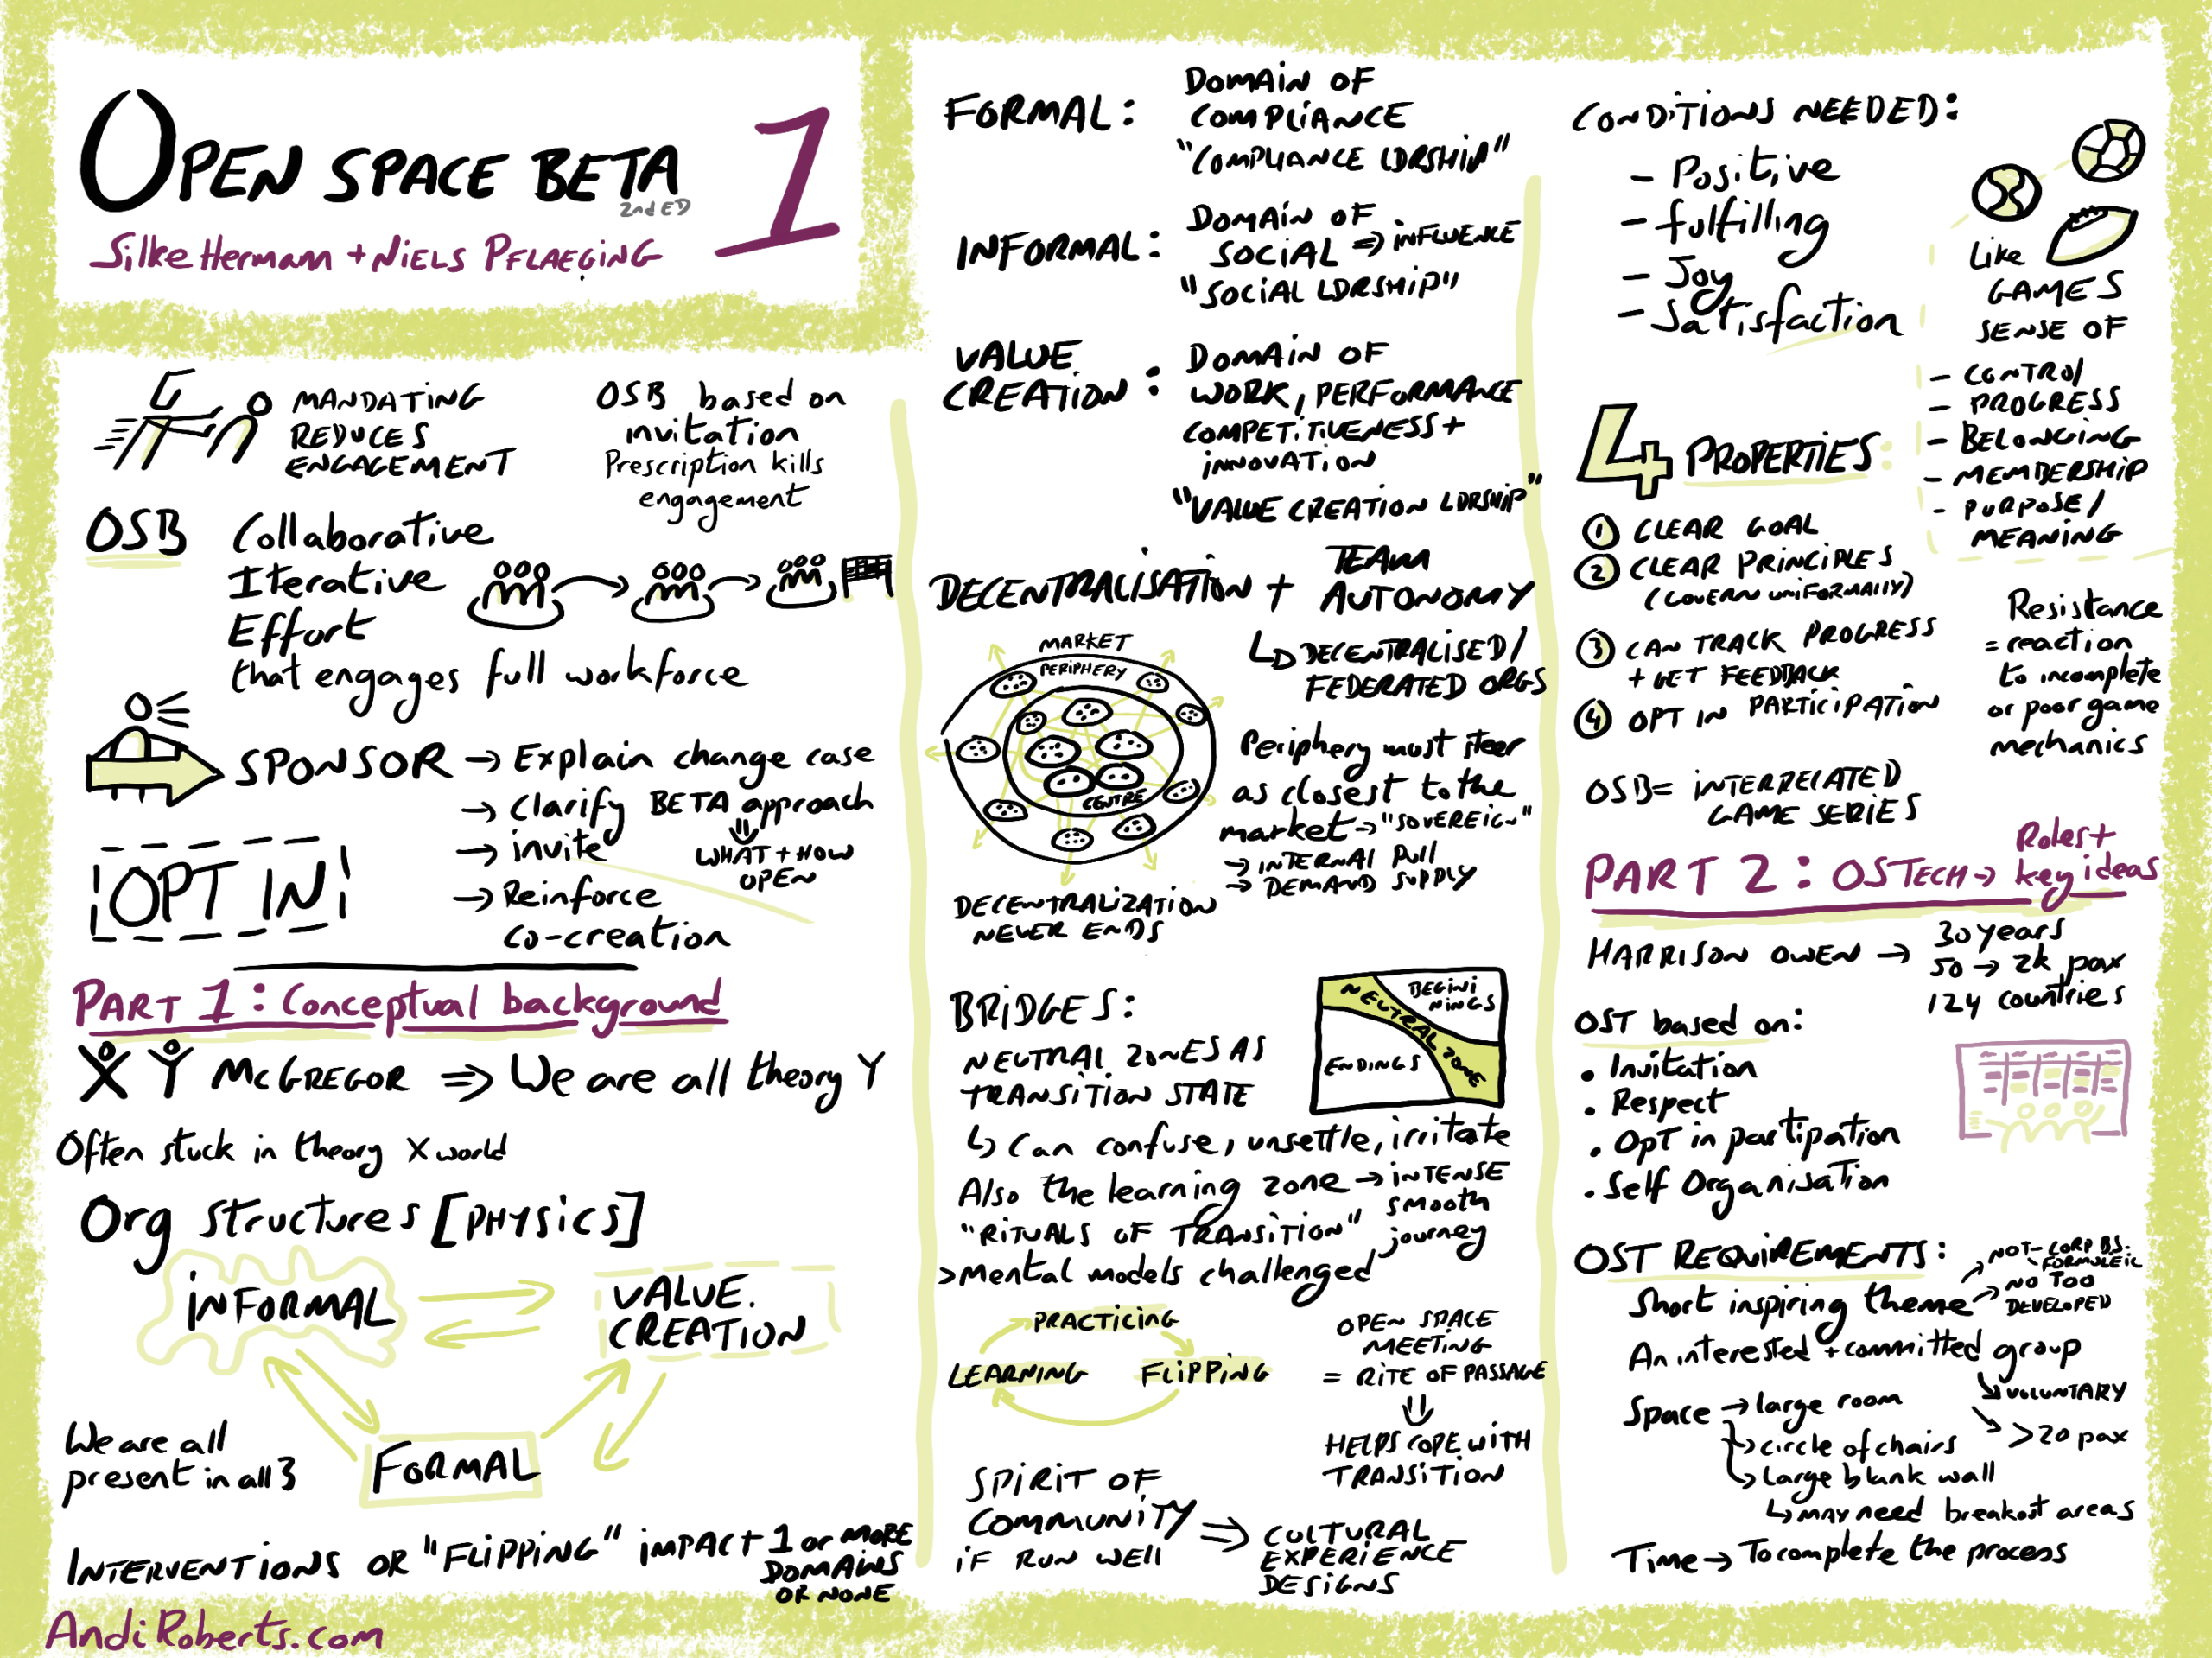 OPEN SPACE BETA
2nd ED
1
Silke Hermann + NiELS PFLAEGING
MANDATING
REDUCES
ENGAGEMENT
OSB based on
invitation
Prescription kills
engagement
OSB
Collaborative
Iterative
Effort
that engages full workforce
SPONSOR → Explain change case
→ Clarify BETA approach
WHAT + HOW
OPEN
→ invite
→ Reinforce
co-creation
OPT IN
PART 1: Conceptual background
X Y McGREGOR ⇒ We are all theory Y
Often stuck in theory X world
Org structures [PHYSICS]
INFORMAL
VALUE.
CREATION
FORMAL
We are all
present in all 3
INTERVENTIONS OR "FLIPPING" IMPACT 1 or MORE
DOMAINS
OR NONE
AndiRoberts.com
FORMAL:
DOMAIN OF
COMPLIANCE
"COMPLIANCE LDRSHIP"
INFORMAL:
DOMAIN OF
SOCIAL ⇒ INFLUENCE
"SOCIAL LDRSHIP"
VALUE
CREATION:
DOMAIN OF
WORK, PERFORMANCE
COMPETITIVENESS +
INNOVATION
"VALUE CREATION LDRSHIP"
DECENTRALISATION + TEAM
AUTONOMY
MARKET
PERIPHERY
CENTRE
↳ DECENTRALISED/
FEDERATED ORGS
Periphery must steer
as closest to the
market → "SOVEREIGN"
→ INTERNAL PULL
→ DEMAND SUPPLY
DECENTRALIZATION
NEVER ENDS
BRIDGES:
NEUTRAL ZONES AS
TRANSITION STATE
BEGINI
NINGS
NEUTRAL ZONE
ENDINGS
↳ Can confuse, unsettle, irritate
Also the learning zone → INTENSE
"RITUALS OF TRANSITION" smooth
journey
> Mental models challenged
PRACTICING
LEARNING
FLIPPING
OPEN SPACE
MEETING
= RITE OF PASSAGE
HELPS COPE WITH
TRANSITION
SPIRIT OF
COMMUNITY
IF RUN WELL
⇒ CULTURAL
EXPERIENCE
DESIGNS
CONDITIONS NEEDED:
- Positive
- fulfilling
- Joy
- Satisfaction
Like
GAMES
SENSE OF
- CONTROL
- PROGRESS
- BELONGING
- MEMBERSHIP
- PURPOSE/
MEANING
4 PROPERTIES:
1 CLEAR GOAL
2 CLEAR PRINCIPLES
(GOVERN UNIFORMALLY)
3 CAN TRACK PROGRESS
+ GET FEEDBACK
4 OPT IN PARTICIPATION
Resistance
= reaction
to incomplete
or poor game
mechanics
OSB = INTERRELATED
GAME SERIES
PART 2: OSTECH → Roles +
key ideas
HARRISON OWEN → 30 years
50 → 2k pax
124 countries
OST based on:
• Invitation
• Respect
• Opt in partipation
• Self Organisation
OST REQUIREMENTS:
Short inspiring theme
NOT- CORP BS.
FORMULEIC
NO TOO
DEVELOPED
An interested + committed group
VOLUNTARY
> 20 pax
Space → large room
→ circle of chairs
↳ Large blank wall
↳ may need breakout areas
Time → To complete the process